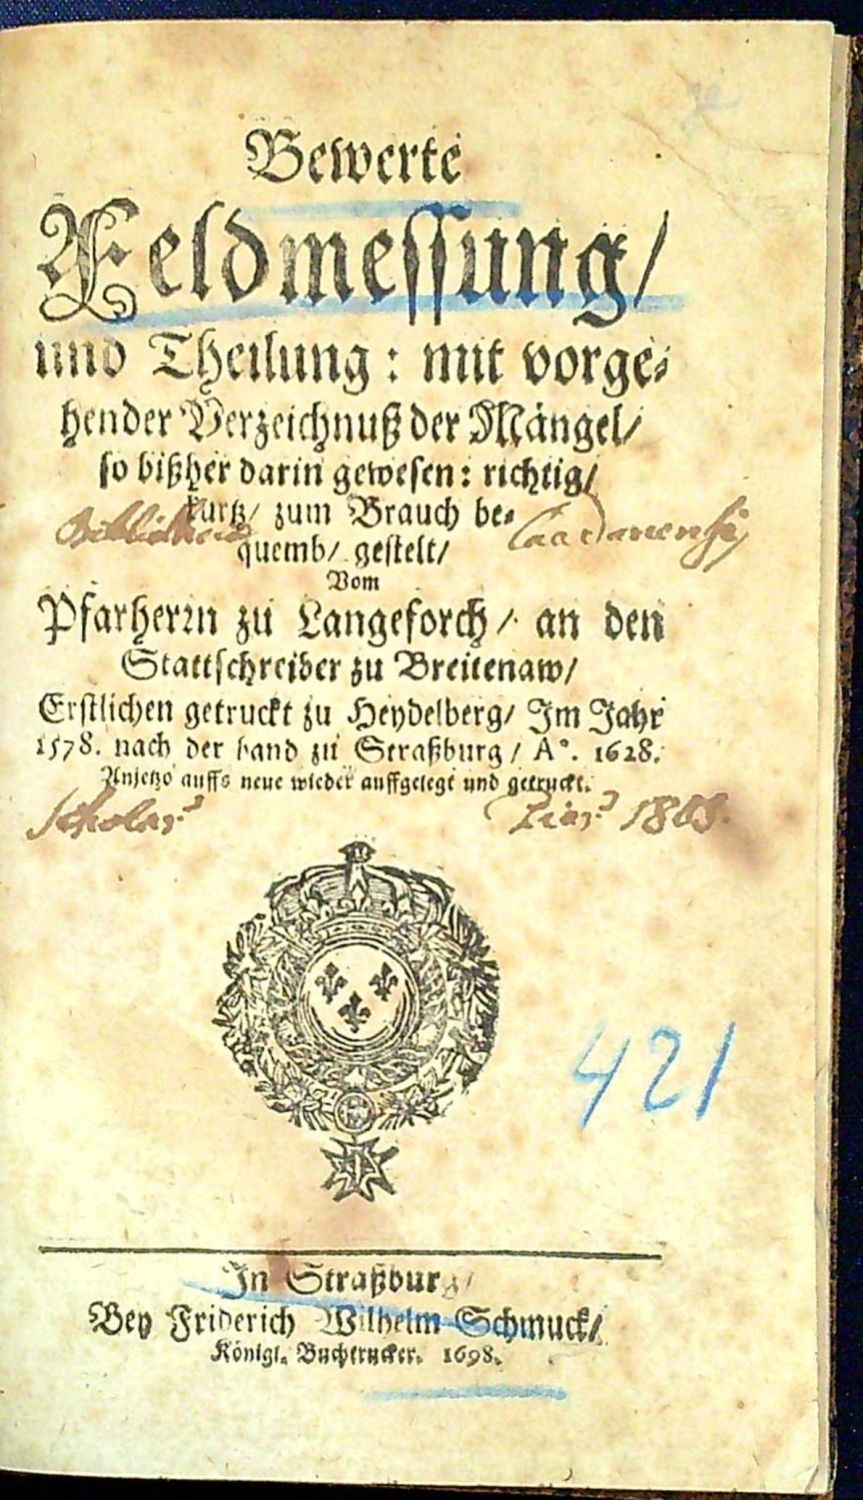 Bewerte
Feldmessung/
und Theilung: mit vorge-
hender Verzeichnuß der Mängel/
so bißher darin gewesen: richtig/
kurtz/ zum Brauch be-
quemb/ gestelt/
Vom
Pfarherrn zu Langeforch/ an den
Stattschreiber zu Breitenaw/
Erstlichen getruckt zu Heydelberg/ Im Jahr
1578. nach der hand zu Straßburg/ A°. 1628.
Anjetzo auffs neue wieder auffgelegt und getruckt.
421
In Straßburg/
Bey Friderich Wilhelm Schmuck/
Königl. Buchtrucker. 1698.